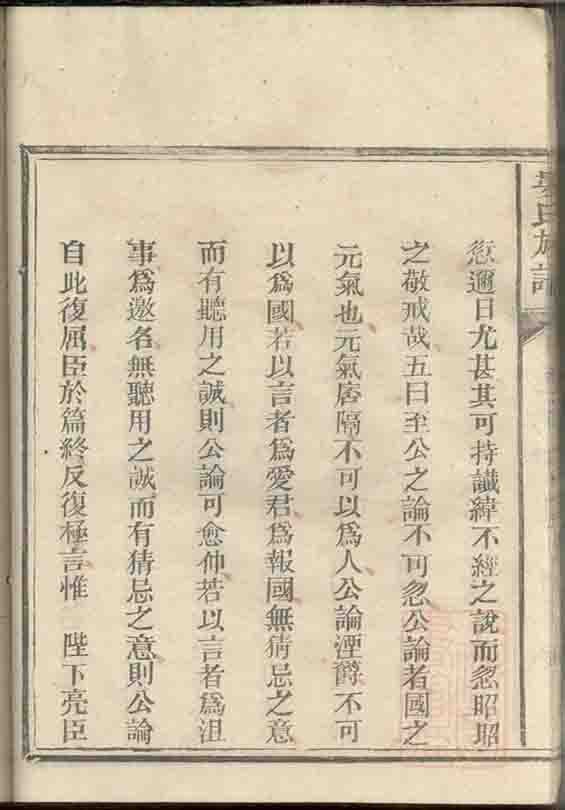 晏氏族譜
愆邇日尤甚其可持讖緯不經之說而忽昭昭
之敬戒哉五曰至公之論不可忽公論者國之
元氣也元氣痞隔不可以爲人公論湮鬱不可
以爲國若以言者爲愛君爲報國無猜忌之意
而有聽用之誠則公論可愈伸若以言者爲沮
事爲邀名無聽用之誠而有猜忌之意則公論
自此復屈臣於篇終反復極言惟 陛下亮臣